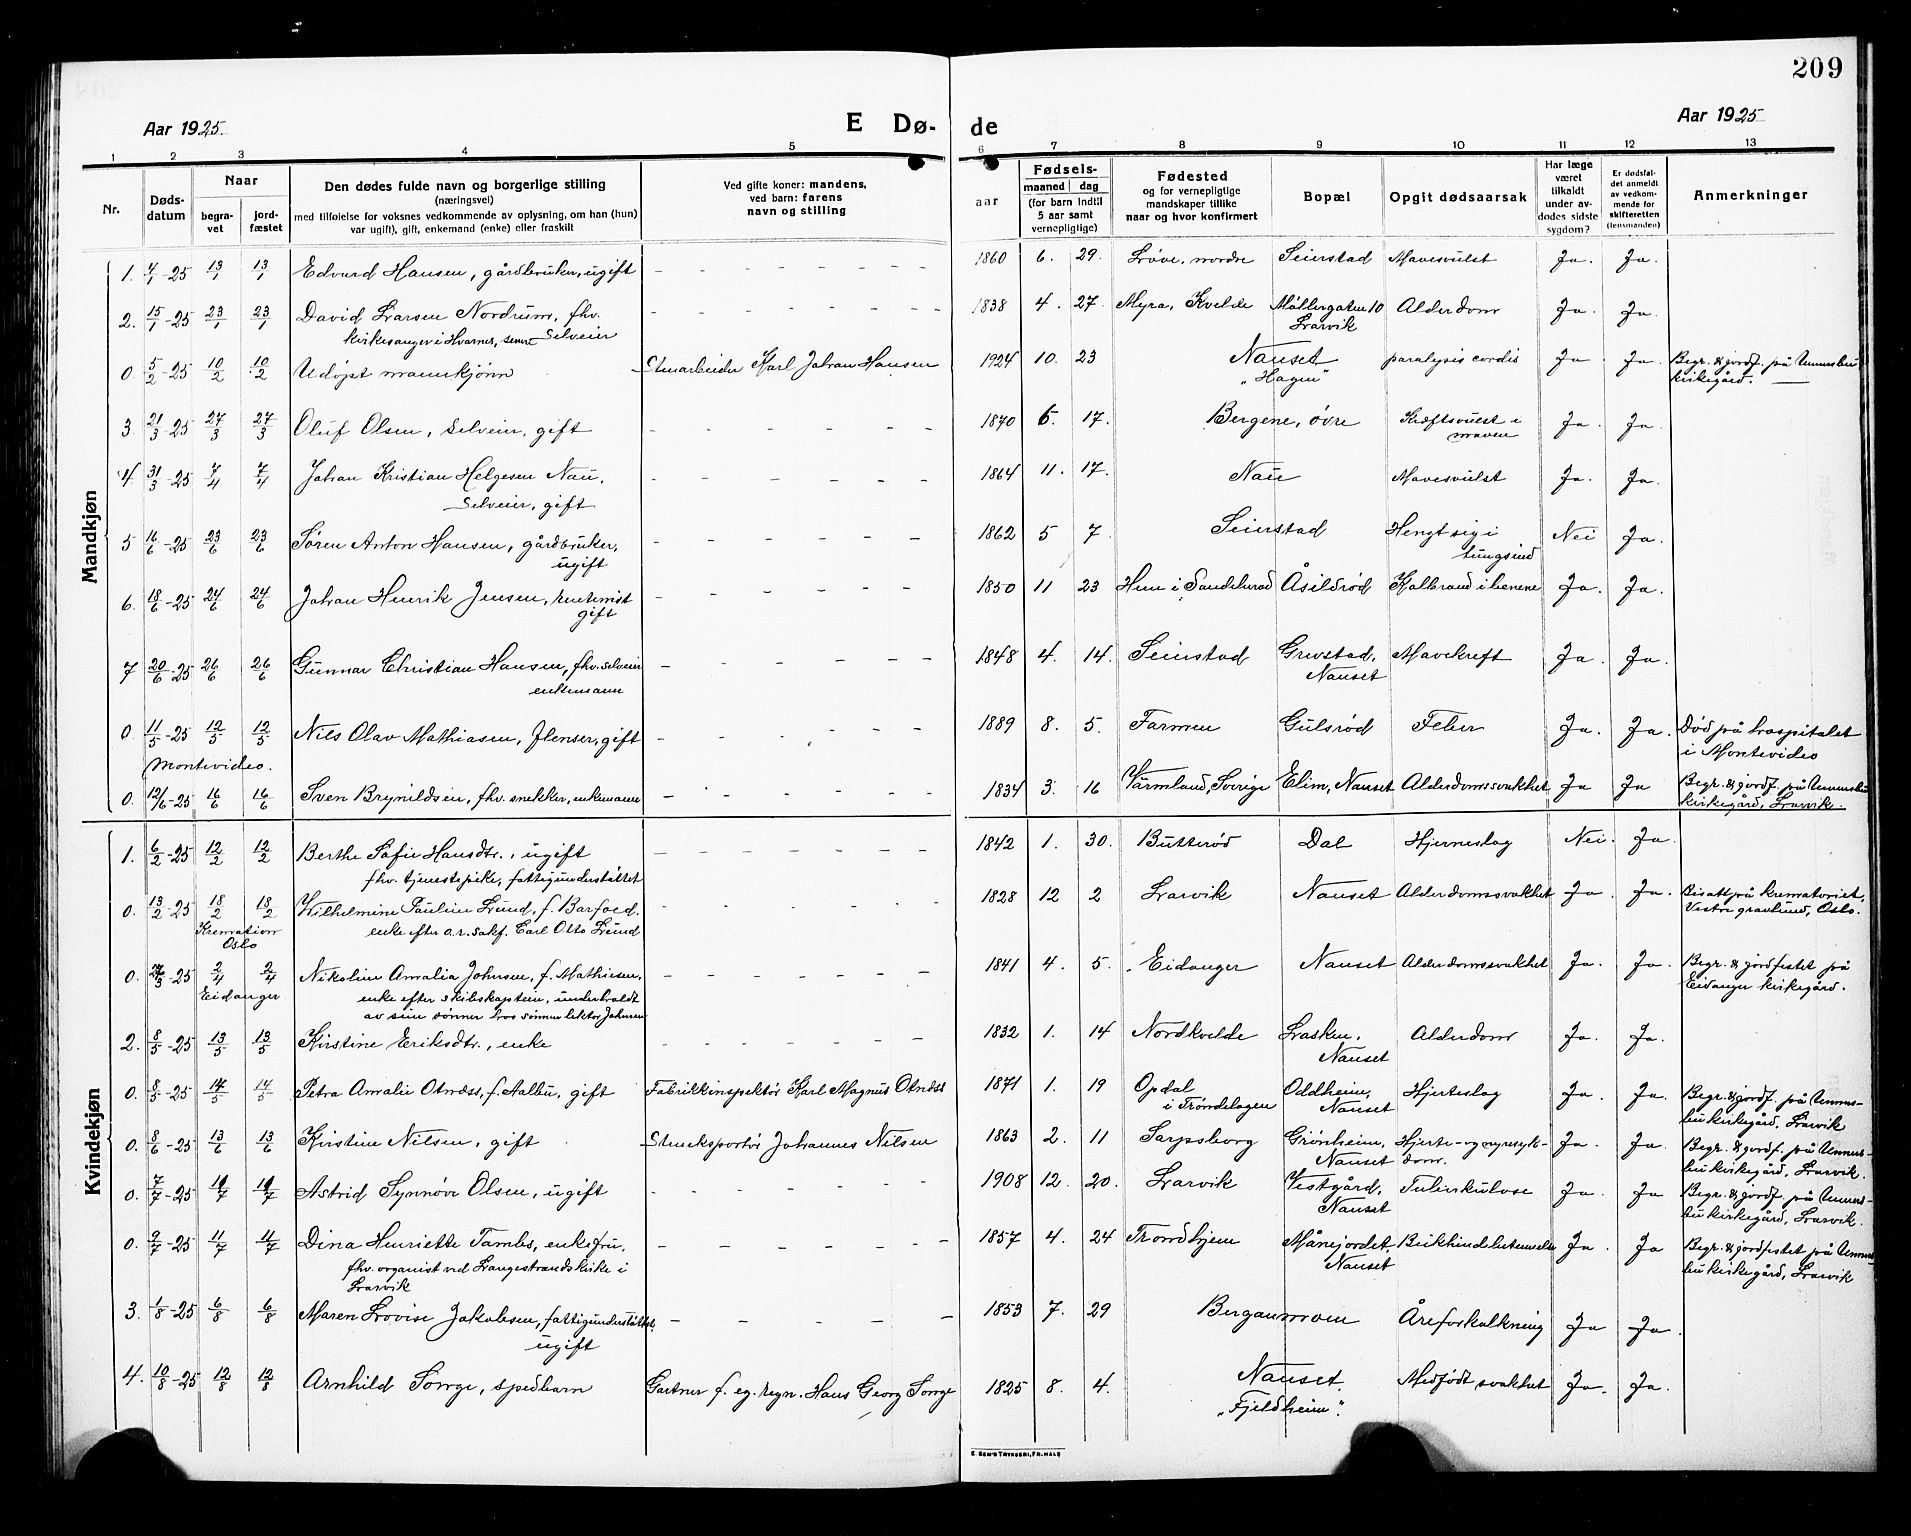 209
Aar 1925.
E Dø-
de
Aar 1925
1 2 3 4 5 6 7 8 9 10 11 12 13
Nr.
Døds-
datum
Naar
begra-
vet
jord-
fæstet
Den dødes fulde navn og borgerlige stilling
(næringsvei)
med tilføielse for voksnes vedkommende av oplysning, om han (hun)
var ugift), gift, enkemand (enke) eller fraskilt
Ved gifte koner: mandens,
ved barn: farens
navn og stilling
aar
Fødsels-
maaned dag
(for barn indtil
5 aar samt
vernepligtige)
Fødested
og for vernepligtige
mandskaper tillike
naar og hvor konfirmert
Bopæl
Opgit dødsaarsak
Har læge
været
tilkaldt
under av-
dødes sidste
sygdom?
Er dødsfal-
det anmeldt
av vedkom-
mende for
skifteretten
(lensmanden)
Anmerkninger
Mandkjøn
1. 4/1-25 13/1 13/1 Edvard Hansen, gårdbruker, ugift - - - - - - - 1860 6. 29. Løve, nordre Seierstad Mavesvulst Ja. Ja.
2. 15/1-25 23/1 23/1 David Larsen Nordrum, fhv. - - - - - - - 1838 4. 27. Myra, Kvelde Møllergaten 10 Alderdom Ja. Ja.
kirkesanger i Hvarnes, senere Selveier Larvik
0. 5/2-25 10/2 10/2 Udøpt mannkjønn Stenarbeider Karl Johan Hansen 1924 10. 23 Nanset paralysis cordis Ja Ja. Begr. & jordf. på Undersbu
"Hagen" kirkegård.
3. 21/3-25 27/3 27/3 Oluf Olsen, selveier, gift - - - - - - 1870 5. 17. Bergene, øvre Kræftsvulst i Ja. Ja.
maven
4. 31/3-25 7/4 7/4 Johan Kristian Helgesen Nau, - - - - - - 1864 11. 17. Nau Mavesvulst Ja. Ja.
Selveier, gift
5 16/6-25 23/6 23/6 Søren Anton Hansen, gårdbruker, - - - - - - 1862 5 7 Seierstad Hengt sig i Nei Ja.
ugift tungsind
6. 18/6-25 24/6 24/6 Johan Henrik Jensen, rentenist - - - - - - 1850 11 23 Hem i Sandeherad Åsildrød Kolbrand i benene Ja. Ja.
gift
7 20/6-25 26/6 26/6 Gunnar Christian Hansen, fhv. selveier - - - - - - 1848 4. 14. Seierstad Grevstad, Mavekreft Ja. Ja.
enkemann Nanset
0. 11/5-25 12/5 12/5 Nils Olav Mathiasen, flenser, gift - - - - - - 1889 8. 5. Farmen Gulsrød Feber Ja. Ja. Død på hospitalet
Montevideo. i Montevideo
0. 12/6-25 16/6 16/6 Sven Brynildsen, fhv. snekker, enkemann - - - - - - 1834 3. 16 Värmland, Sverige Elim, Nanset Alderdomssvakhet Ja Ja Begr. & jordf. på Undersbu
kirkegård, Larvik.
Kvindekjøn
1. 6/2-25 12/2 12/2 Berthe Sofie Hansdtr., ugift - - - - - - - 1842 1. 30. Butterød Dal Hjerneslag Nei. Ja.
fhv. tjenestepike, fattigunderstøttet
0. 13/2-25 18/2 18/2 Wilhelmine Pauline Lund, f. Barfoed. - - - - - - 1828 12 2 Larvik Nanset Alderdomssvakhet Ja. Ja. Bisatt på krematoriet,
Kremation enke efter o.r.sakf. Carl Otto Lund Vestre gravlund, Oslo.
Oslo
0. 27/3-25 2/4 2/4 Nikoline Amalia Johnsen, f. Mathiesen, - - - - - - 1841 4. 5. Eidanger Nanset Alderdomssvakhet Ja. Ja. Begr. & jordfestet på
Eidanger enke efter skibskaptein, underholdt Eidanger kirkegård.
av sine sønner hos sønnen lektor Johnsen
2. 8/5-25 13/5 13/5 Kirstine Eriksdtr., enke - - - - - - - 1832 1. 14 Nordkvelde Lasken, Alderdom Ja. Ja.
Nanset
0. 8/5-25 14/5 14/5 Petra Amalie Otnæss, f. Aalbu, gift Fabrikkinspektør Karl Magnus Otnæss 1871 1. 19 Opdal Oddheim, Hjerteslag Ja. Ja. Begr. & jordf. på Unders-
i Trøndelagen Nanset bu kirkegård, Larvik
0. 8/6-25 13/6 13/6 Kirstine Nilsen, gift Stuoksportør Johannes Nilsen 1863 2. 11 Sarpsborg Grønheim, Hjerte- og nyresyk- Ja. Ja. Begr. & jordf. på Unders-
Nanset dom. bu kirkegård, Larvik.
0. 7/7-25 11/7 11/7 Astrid Synnøve Olsen, ugift - - - - - - 1908 12. 20. Larvik Vestgård, Tuberkulose Ja. Ja Begr. & jordf. på Unders-
Nanset bu kirkegård, Larvik.
0. 9/7-25 11/7 11/7 Dina Henriette Tambs, enkefru, - - - - - - 1857 4. 24 Trondhjem Månejordet, Bukhindebetennelse Ja. Ja Begr. & jordfestet på Unders-
fhv. organist ved Langestrands kirke i Nanset bu kirkegård, Larvik
Larvik
3. 1/8-25 6/8 6/8 Maren Lovise Jakobsen, fattigunderstøttet, - - - - - 1853 7. 29 Berganmoen Åreforkalkning Ja Ja.
ugift
4. 10/8-25 12/8 12/8 Arnhild Sorge, spedbarn Gartner f. eg. regn. Hans Georg Sorge 1825 8. 4. Nanset, Medfødt svakhet Ja. Ja.
"Fjeldheim".